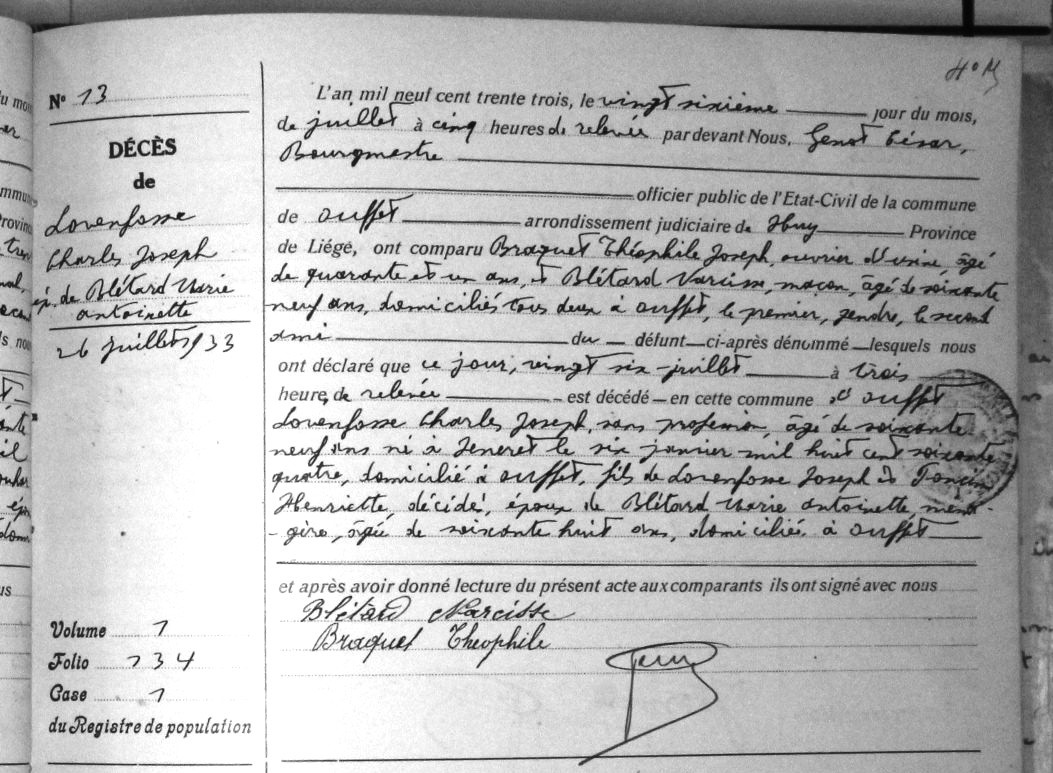 N° 13
DÉCÈS
de
Lovenfosse
Charles Joseph
ép. de Blétard Marie
antoinette
26 juillet 1933
Volume 1
Folio 134
Case 1
du Registre de population
L'an mil neuf cent trente trois, le vingt sixième jour du mois,
de juillet à cinq heures de relevée par devant Nous, Genot César,
Bourgmestre
officier public de l'Etat-Civil de la commune
de Ouffet arrondissement judiciaire de Huy Province
de Liége, ont comparu Braquet Théophile Joseph, ouvrier d'usine, âgé
de quarante et un ans, et Blétard Narcisse, maçon, âgé de soixante
neuf ans, domiciliés tous deux à Ouffet, le premier, gendre, le second
ami du défunt ci-après dénommé lesquels nous
ont déclaré que ce jour, vingt six juillet à trois
heures de relevée est décédé en cette commune d'Ouffet
Lovenfosse Charles Joseph, sans profession, âgé de soixante
neuf ans né à Seneret le six janvier mil huit cent soixante
quatre, domicilié à Ouffet, fils de Lovenfosse Joseph et
Henriette, décédés, époux de Blétard Marie antoinette, ména-
-gère, âgée de soixante huit ans, domiciliée à Ouffet
et après avoir donné lecture du présent acte aux comparants ils ont signé avec nous
Blétard Narcisse
Braquet Theophile